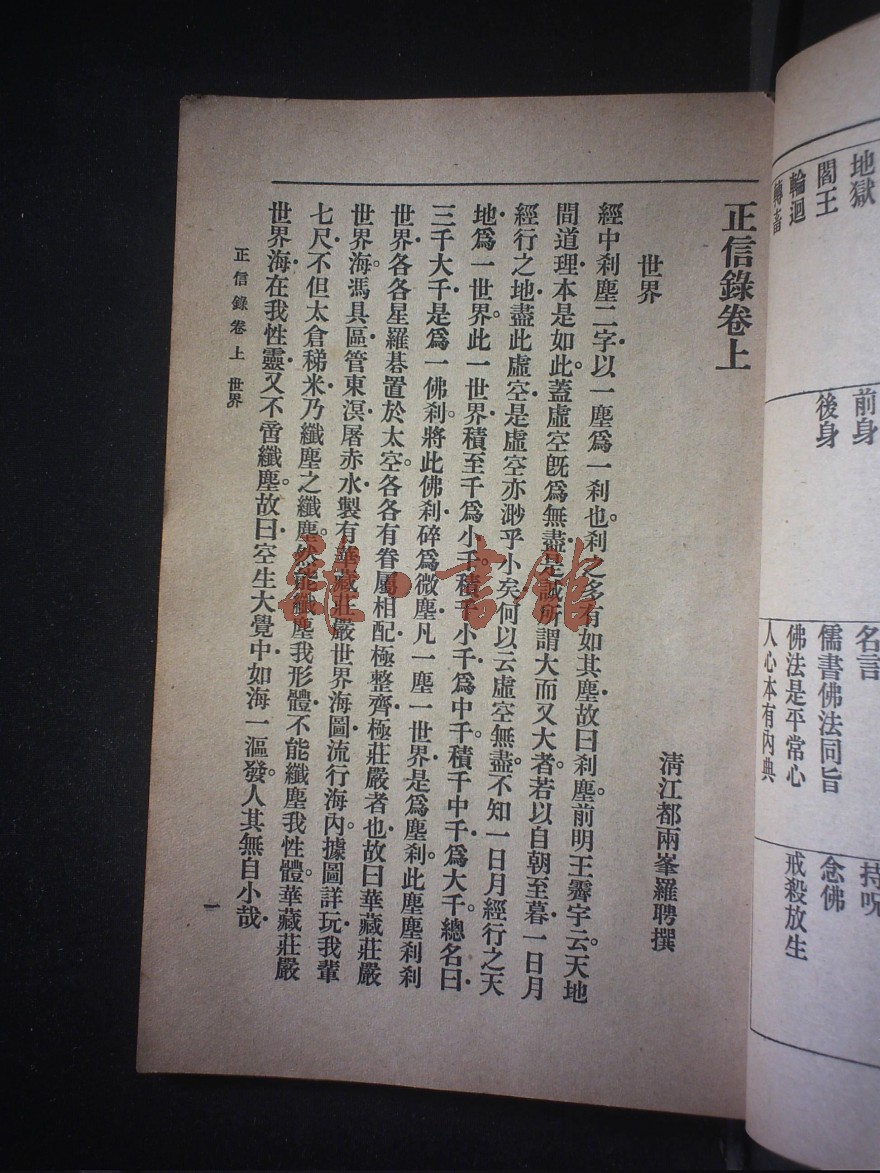 地獄
閻王
輪迴
轉畜
前身
後身
名言
儒書佛法同旨
佛法是平常心
人心本有內典
持呪
念佛
戒殺放生
正信錄卷上
清江都兩峯羅聘撰
世界
經中剎塵二字以一塵爲一剎也。剎之多有如其塵故曰剎塵。前明王霽宇云。天地
間道理本是如此。蓋虛空旣爲無盡是誠所謂大而又大者。若以自朝至暮一日月
經行之地盡此虛空是虛空亦渺乎小矣何以云虛空無盡。不知一日月經行之天
地爲一世界。此一世界積至千爲小千。積千小千爲中千。積千中千爲大千。總名曰
三千大千是爲一佛剎。將此佛剎碎爲微塵凡一塵一世界是爲塵剎。此塵塵剎剎
世界各各星羅碁置於太空。各各有眷屬相配極整齊極莊嚴者也故曰華藏莊嚴
世界海。馮具區管東溟屠赤水製有華藏莊嚴世界海圖流行海內。據圖詳玩我輩
七尺不但太倉稊米乃纖塵之纖塵。然能纖塵我形體不能纖塵我性體。華藏莊嚴
世界海在我性靈又不啻纖塵。故曰空生大覺中如海一漚發。人其無自小哉
正信錄卷上 世界
一
雜·書館